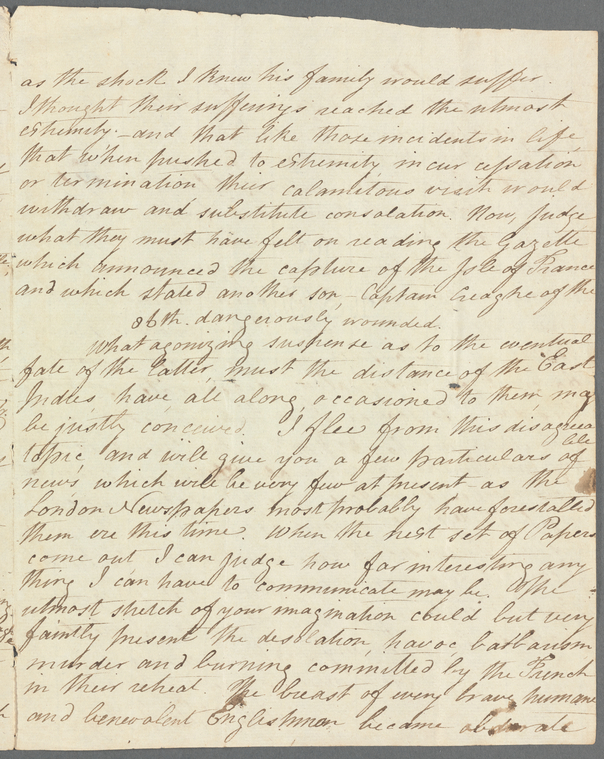 as the shock I knew his family would suffer.
I thought their sufferings reached the utmost
extremity. – and that like those incidents in life,
that when pushed to extremity, incur cessation
or termination their calamitous visit would
withdraw and substitute consolation. Now, judge
what they must have felt on reading the Gazette
which announced the capture of the Isle of France
and which stated another son, – Captain Creaghe of the
86th. dangerously wounded.
What agonizing suspense as to the eventual
fate of the latter, must the distance of the East
Indies have all along, occasioned to them, may
be justly conceived. I flee from this disagreea
ble
topic, and will give you a few particulars of
news which will be very few at present as the
London Newspapers most probably have forestalled
them ere this time. When the next set of Papers
come out I can judge how far interesting any
thing I can have to communicate may be. The
utmost stretch of your imagination could but very
faintly present the desolation, havoc, barbarism
murder and burning committed by the French
in their retreat. The breast of every brave humane
and benevolent Englishman became obdurate